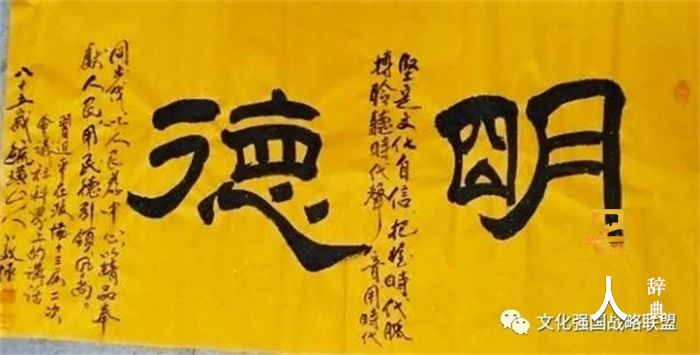 明德
堅定文化自信、把握時代脈
搏聆聽時代聲音用時代
同步伐以人民為中心以精品奉
獻人民用民德引領風尚。
習近平在政協十三屆二次
會議社科界上的講話
八十五歲山人
人
辞典
文化强国战略联盟